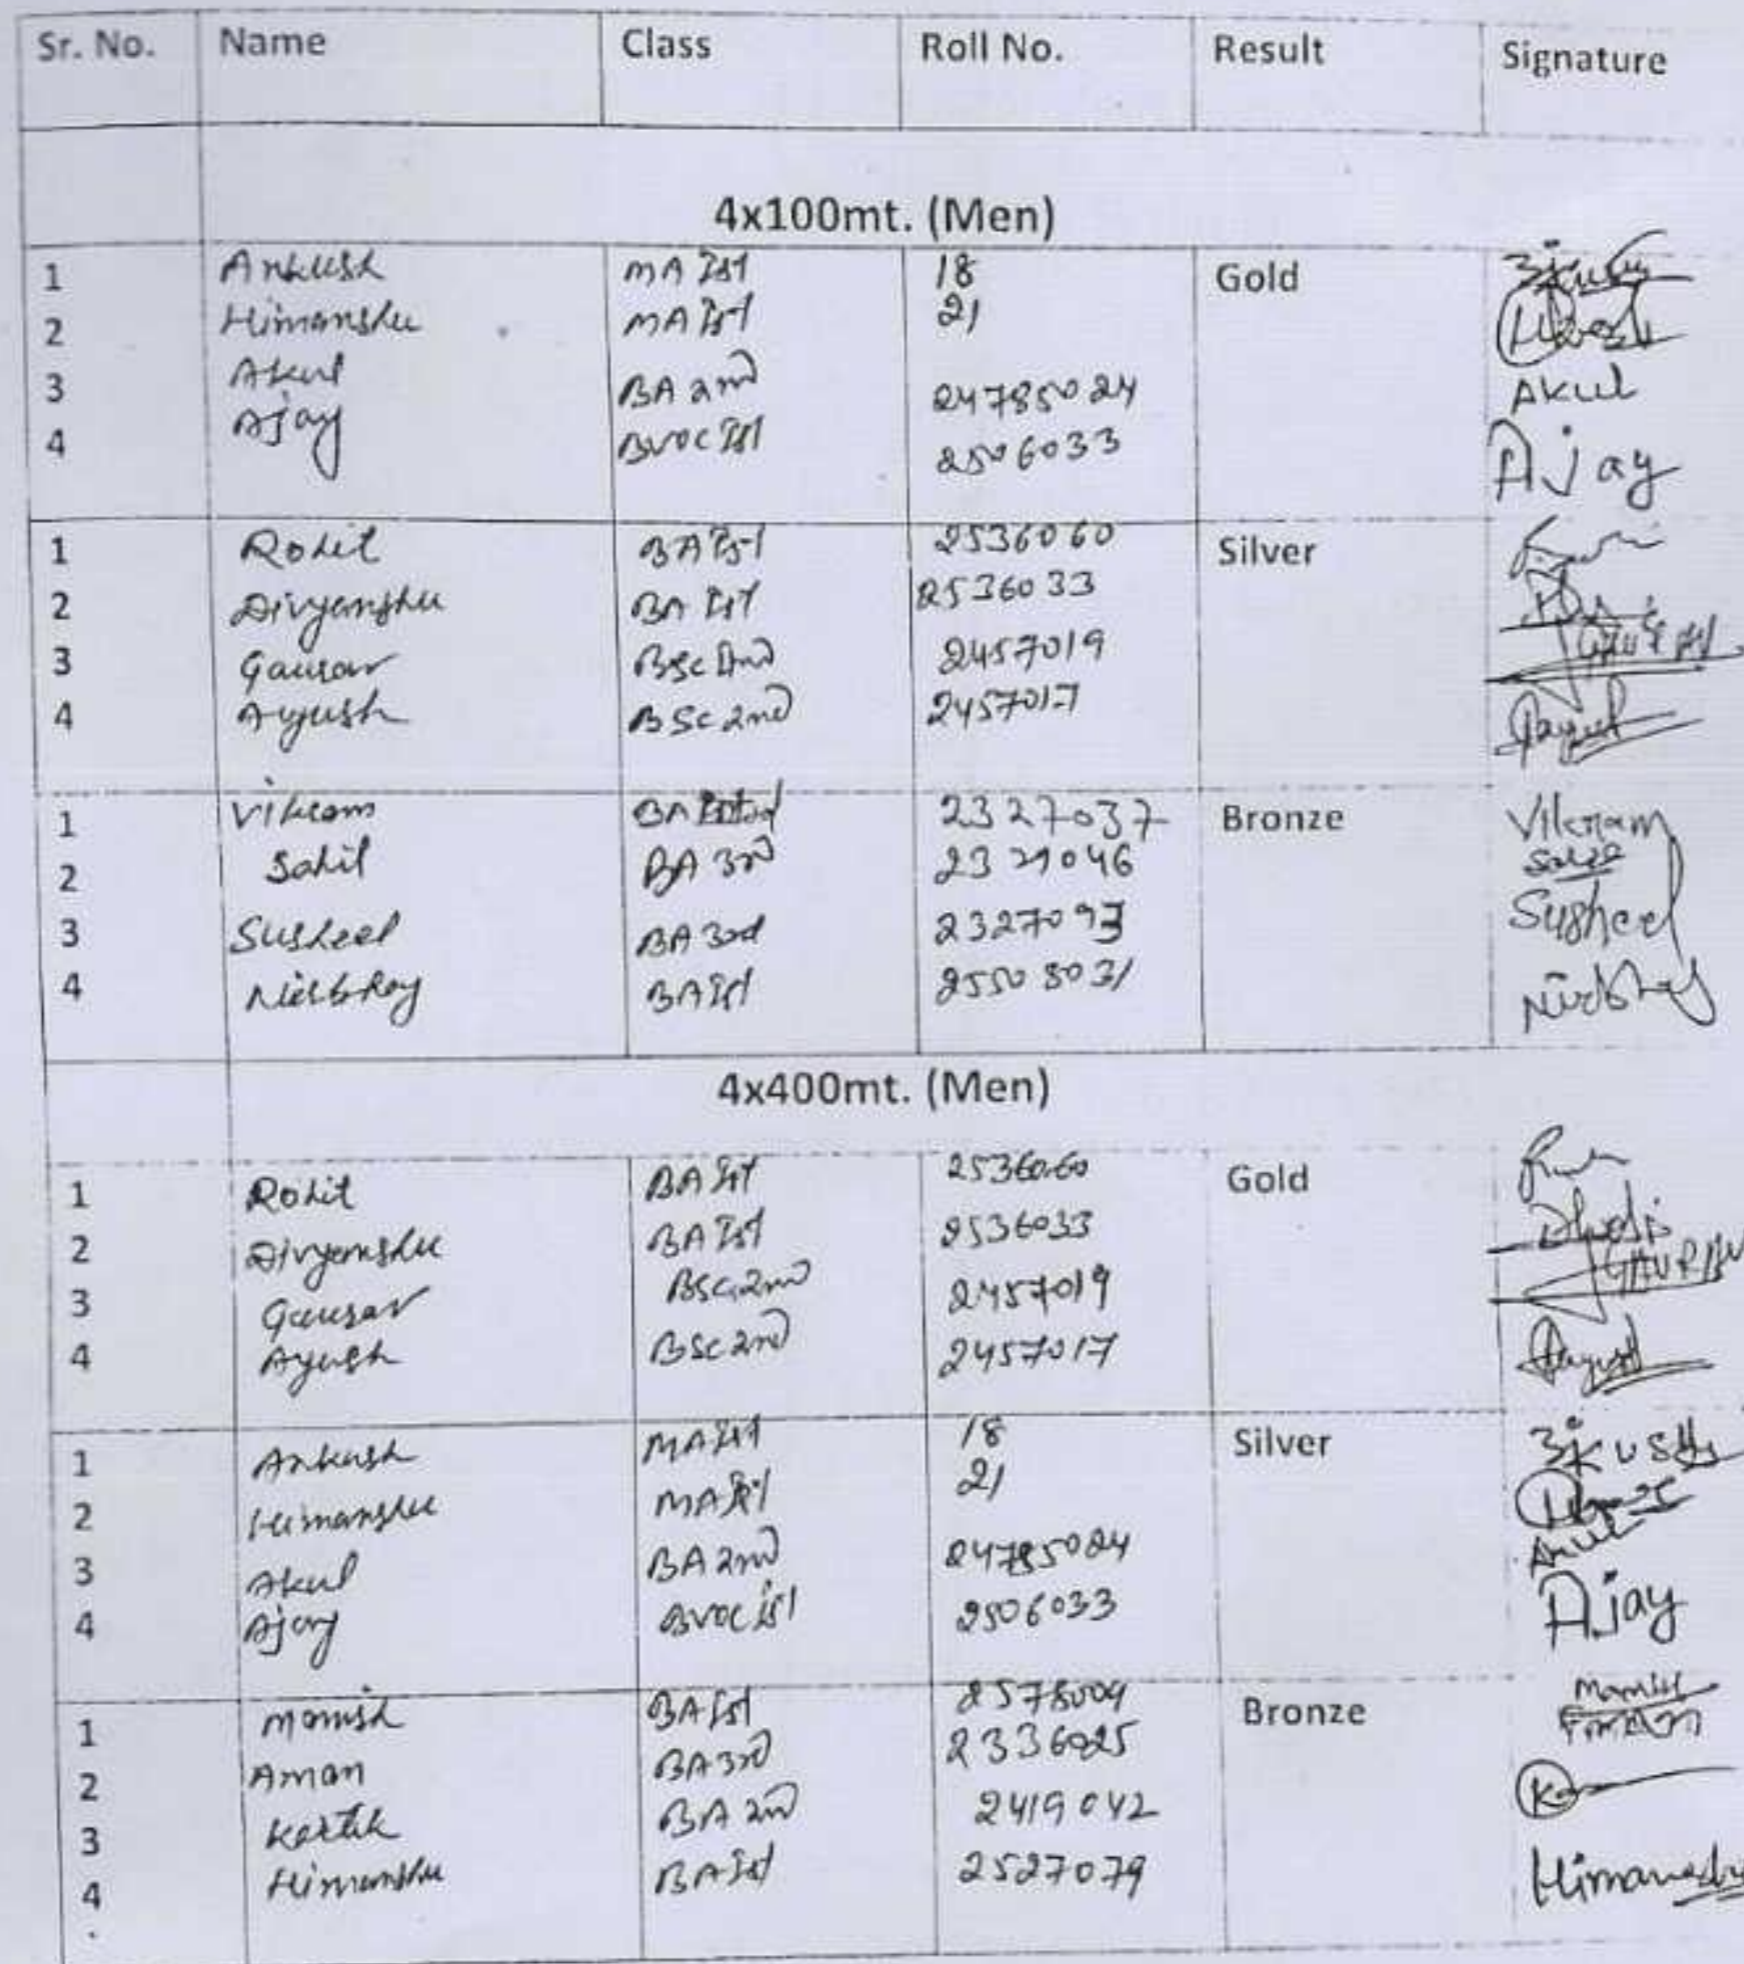 Sr. No. Name Class Roll No. Result Signature
4x100mt. (Men)
1 Ankush MA Ist 18 Gold
2 Himanshu MA Ist 21
3 Akul BA 2nd 24785024 Akul
4 Ajay BVOC Ist 2506033 Ajay
1 Rohit BA Ist 2536060 Silver
2 Divyanshu BA Ist 2536033
3 Gaurav BSc IInd 2457019
4 Ayush BSc 2nd 2457017
1 Vikram BA 2327037 Bronze Vikram
2 Sahil BA 3rd
3 Susheel BA 3rd 2327093 Susheel
4 Nirbhay BA Ist Nirbhay
4x400mt. (Men)
1 Rohit BA Ist 2536060 Gold
2 Divyanshu BA Ist 2536033
3 Gaurav BSc 2nd 2457019 GAURAV
4 Ayush BSc 2nd 2457017
1 Ankush MA Ist 18 Silver
2 Himanshu MA Ist 21
3 Akul BA 2nd 24785024 Akul
4 Ajay BVOC Ist 2506033 Ajay
1 Manish BA Ist 2578009 Bronze Manish
2 Aman BA 3rd 2336025
3 Kartik BA 2nd 2419042
4 Himanshu BA Ist 2527079 Himanshu